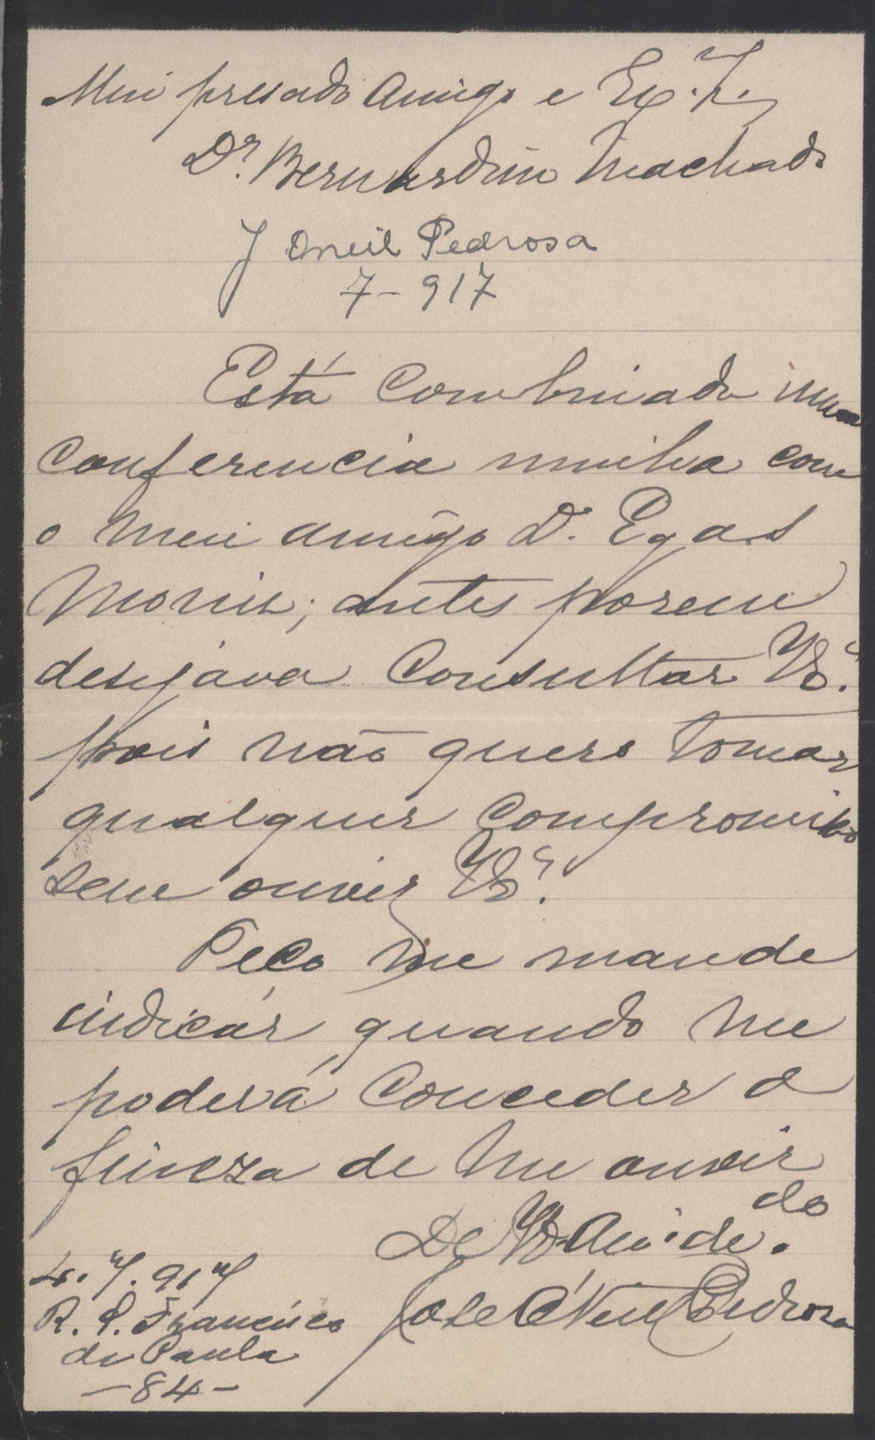 Meu presado Amigo e Ex.
Dr. Bernardino Machado
J Oneil Pedrosa
7-917
Está Combinada uma
Conferencia minha com
o meu amigo D. Egas
Moniz; antes porem
desejava Consultar V. Ex.ª
pois não quero tomar
qualquer Compromisso
sem ouvir V. Ex.ª
Peço me mande
indicár quando me
poderá Conceder a
fineza de me ouvir
De V. Ex.ª
José O'Neill Pedrosa
4.7.917
R. S. Francisco
de Paula
-84-